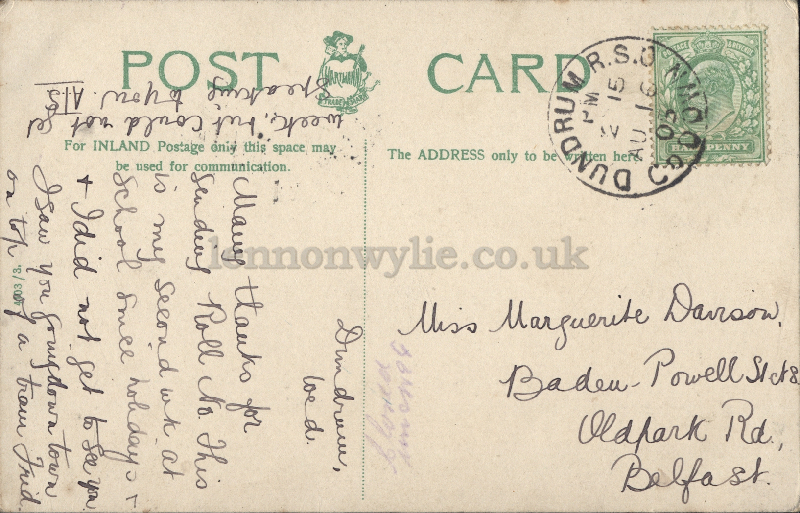 POST CARD
HARTMANN
TRADE MARK
For INLAND Postage only this space may
be used for communication.
The ADDRESS only to be written here.
DUNDRUM R.S.O. CO. DOWN
5 15 PM
AU 16
05
HALFPENNY
4003/3.
Dundrum,
Wed.
Many thanks for
sending Roll No This
is my second wk at
School since holidays +
+ I did not get to see you
I saw you going down town
on top of a tram Frid.
last
week, but could not get
speaking
to you. A.S.
Miss Marguerite Davison,
Baden-Powell St
Oldpark Rd.,
Belfast.
lennonwylie.co.uk